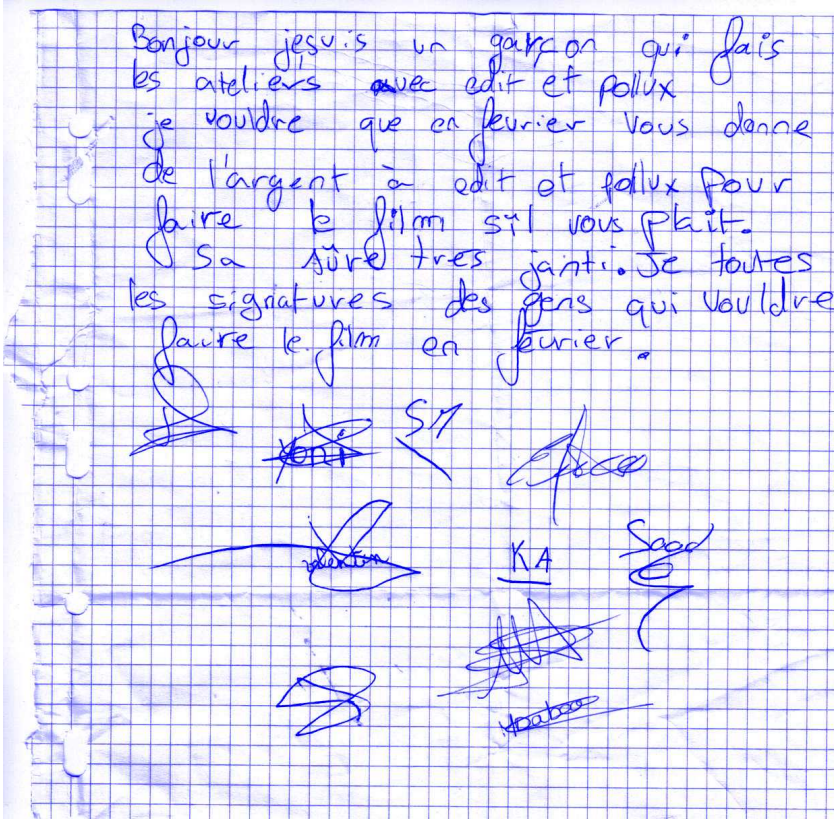 Bonjour jesuis un garçon qui fais
les ateliers avec edit et pollux
je vouldre que en feurier vous donne
de l'argent à edit et pollux pour
faire le film sïl vous plait.
Sa sûre tres janti. Je toutes
les signatures des gens qui vouldre
faire le film en feurier.
Yoni SM
valentin KA Saad